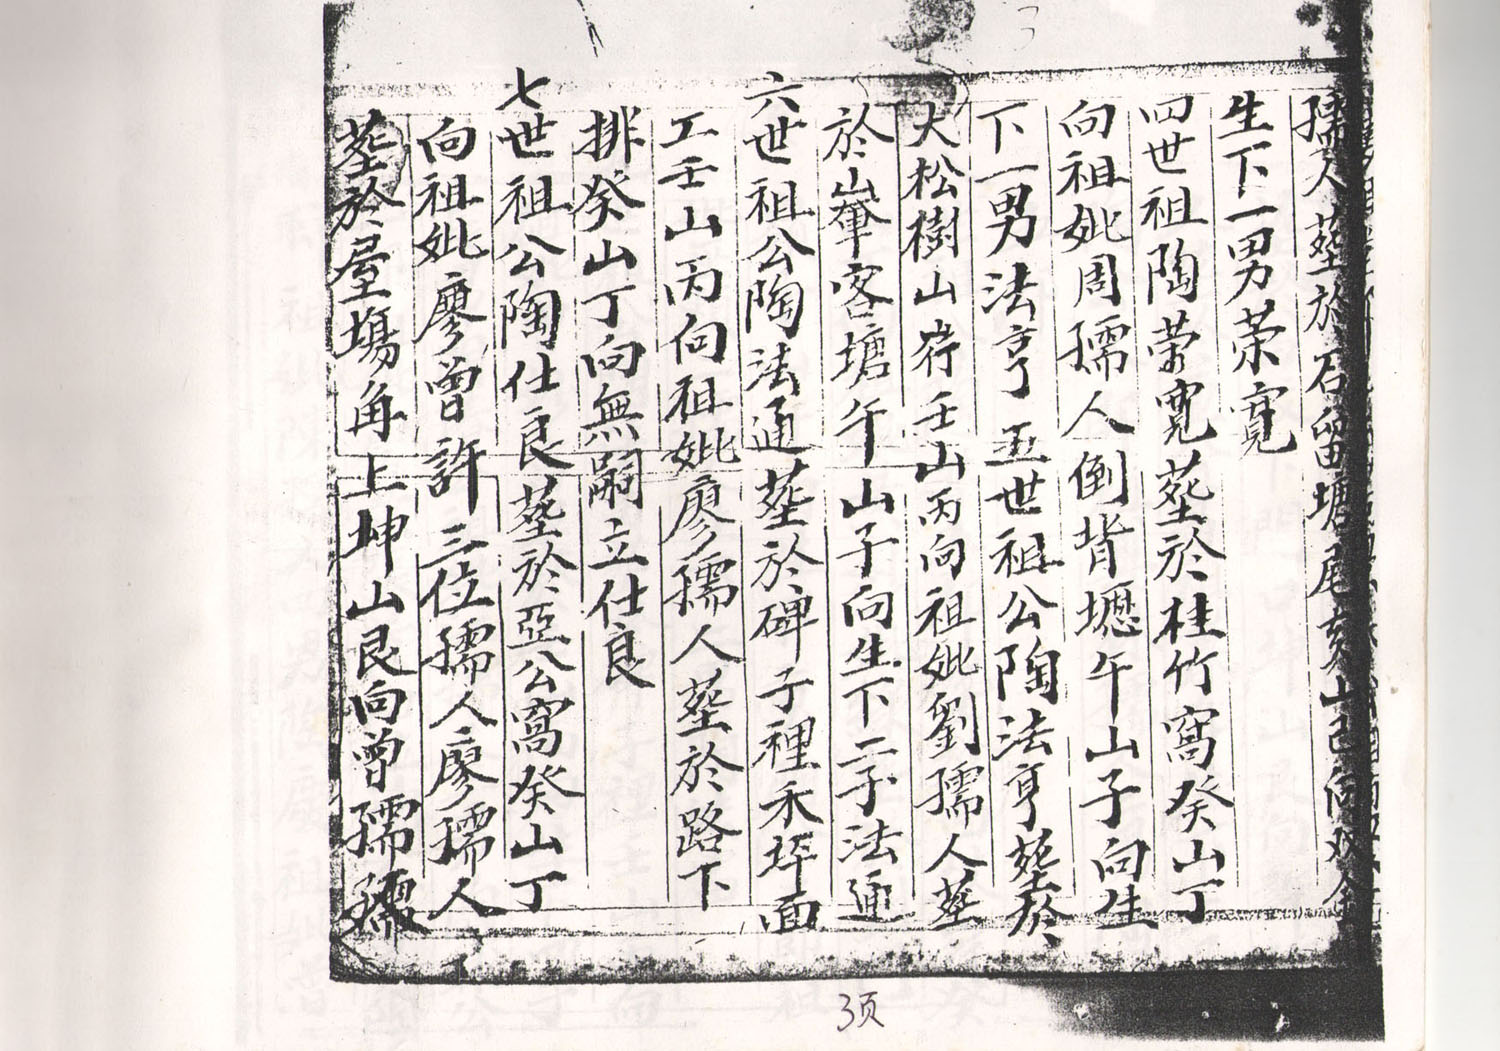 孺人塟於石留塘尾亥山巳向
生下一男荣寛
四世祖陶荣寛塟於桂竹窩癸山丁
向祖妣周孺人倒背壢午山子向生
下一男法亨五世祖公陶法亨塟於
大松樹山背壬山丙向祖妣劉孺人塟
於山輋客塘午山子向生下二子法通
六世祖公陶法通塟於碑子裡禾坪面
工壬山丙向祖妣廖孺人塟於路下
排癸山丁向無嗣立仕良
七世祖公陶仕良塟於亞公窩癸山丁
向祖妣廖曾許三位孺人廖孺人
塟於屋塲角上坤山艮向曾孺
3页